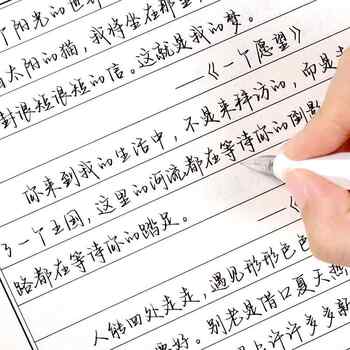 个阳光的世界
太阳的猫，我将坐在那里
封很短很短的信。这就是我的梦。
——《一个愿望》
你来到我的生活中，不是来拜访的，而是走
了一个王国，这里的河流都在等待你的倒影
路都在等待你的踏足。
——《
人能四处走走，遇见形形色色
要好。别老是借口夏天热
许许多多新